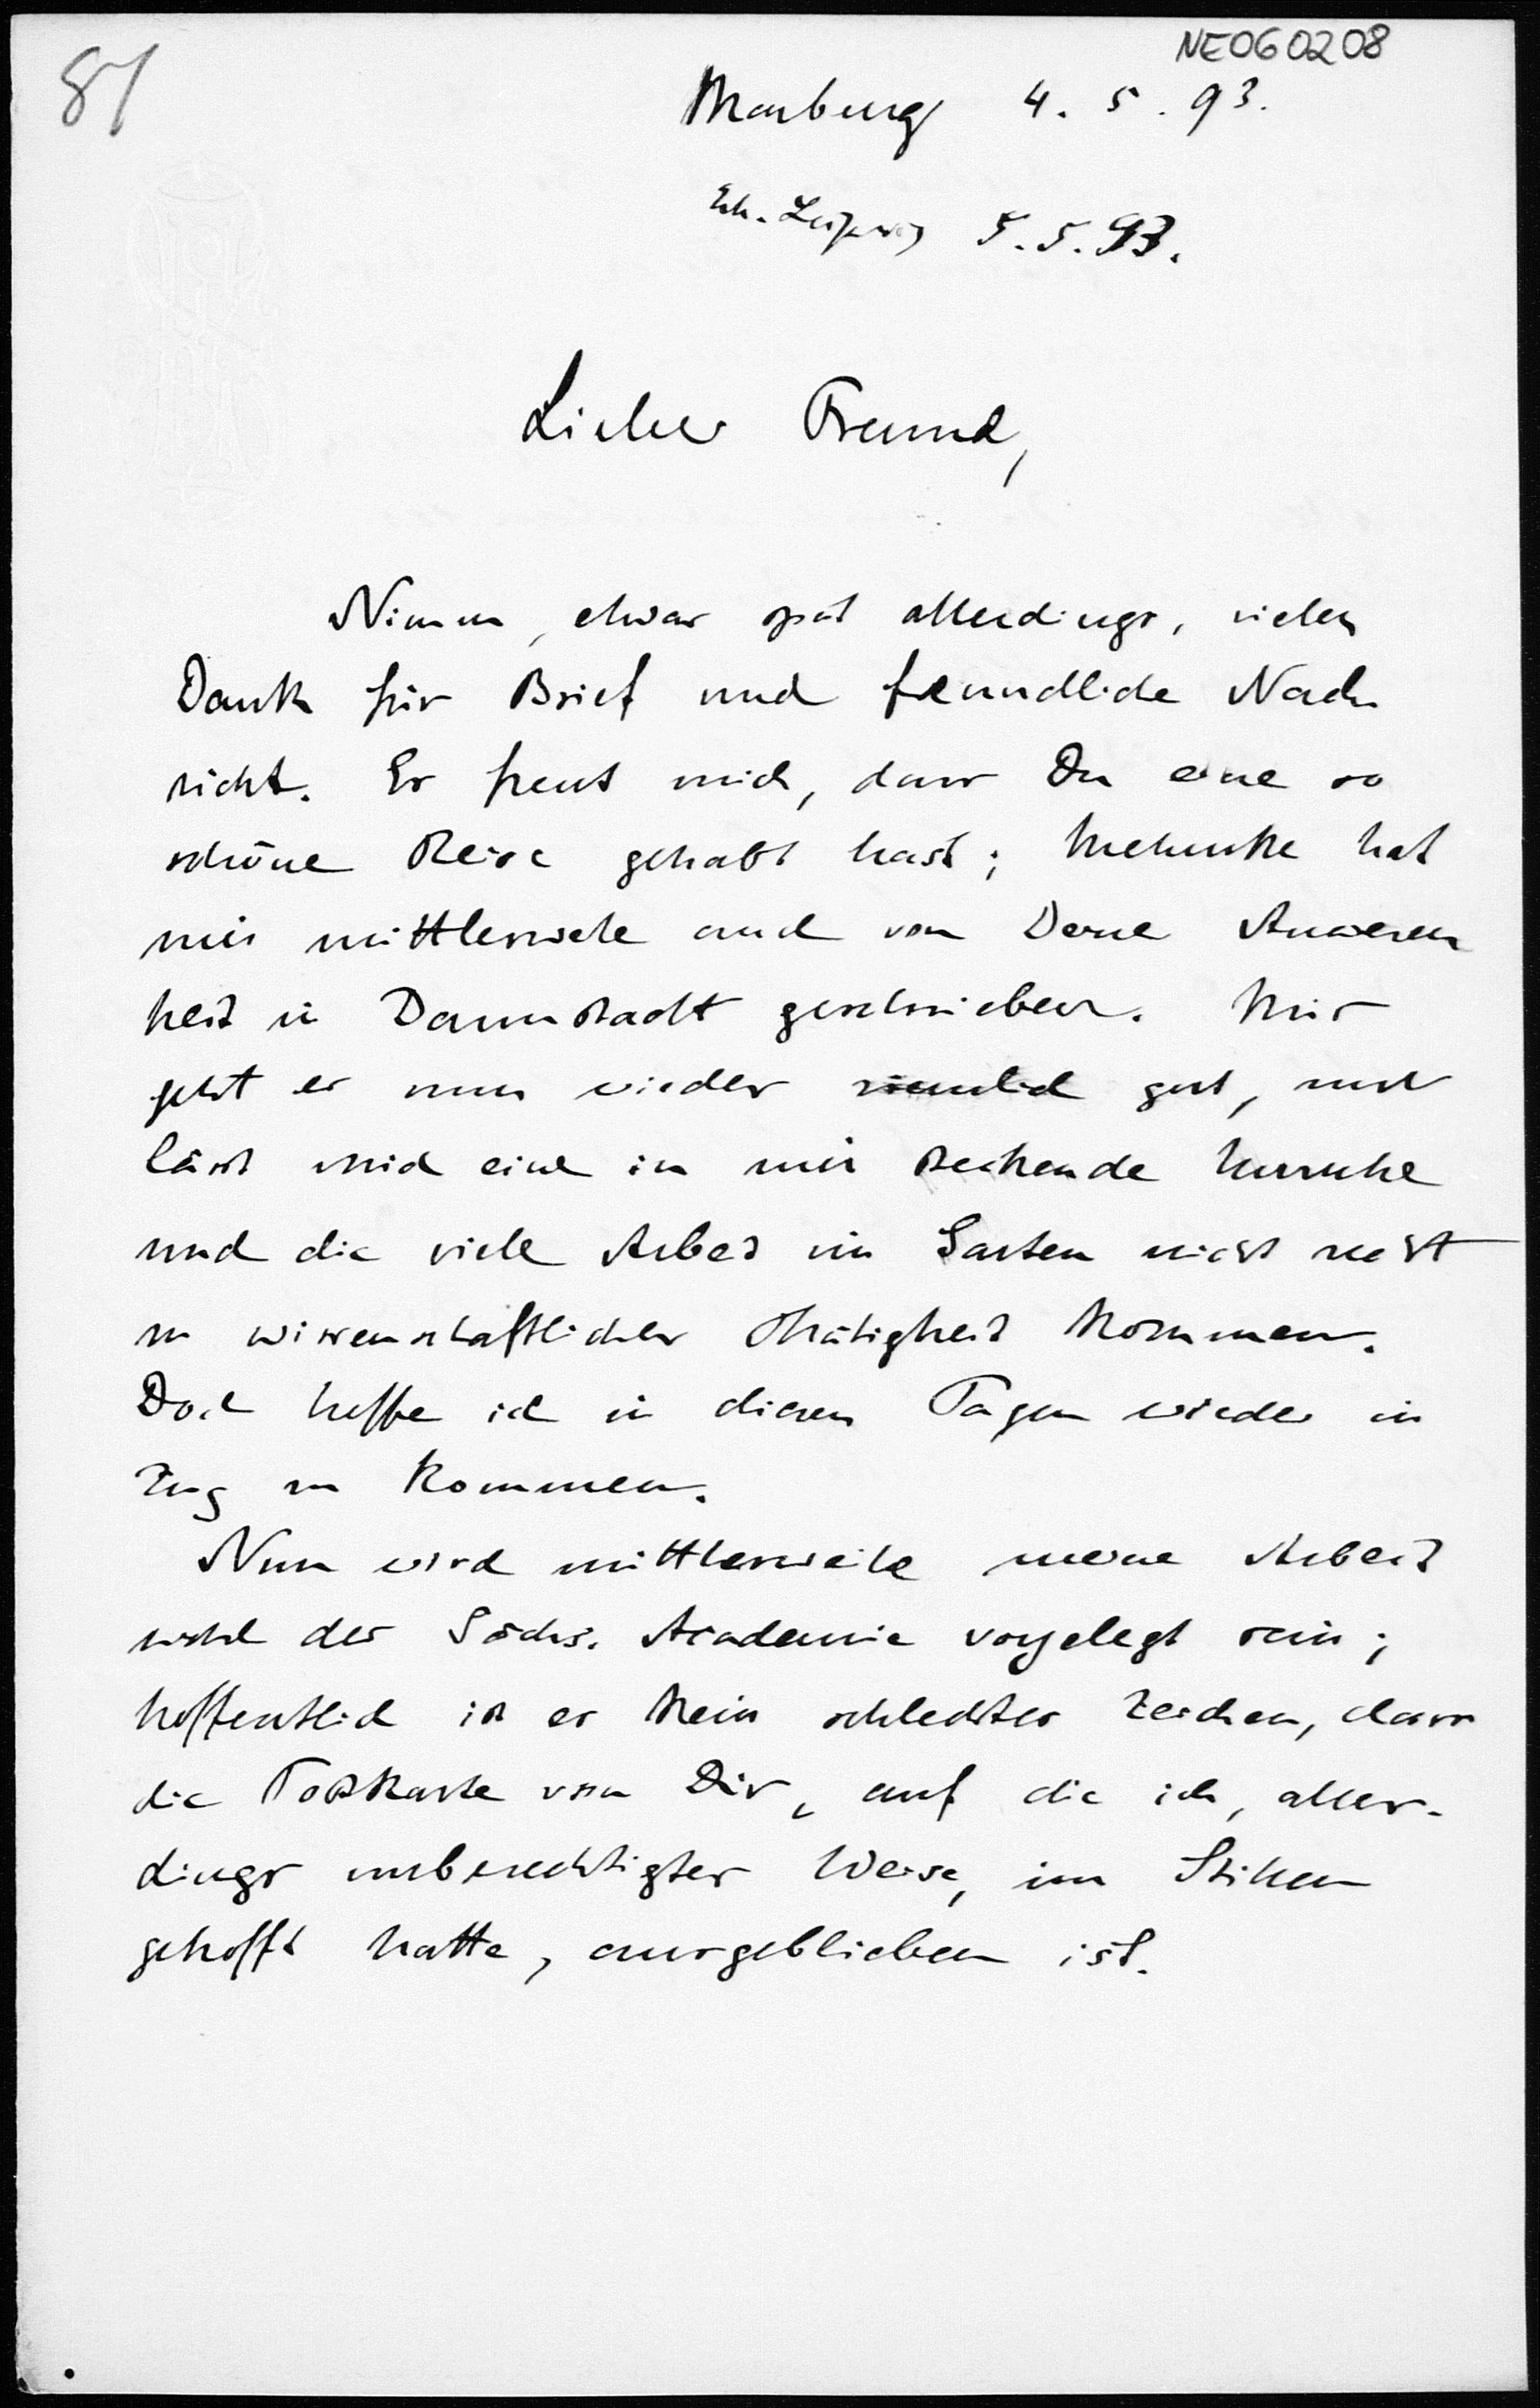 81
NE060208
Marburg 4. 5. 93.
Erh. Leipzig 5.5.93.
Lieber Freund,
Nimm, etwas spät allerdings, vielen
Dank für Brief und freundliche Nach
richt. Es freut mich, dass Du eine so
schöne Reise gehabt hast; Mehmke hat
mir mittlerweile auch von Deine Anwesen
heit in Darmstadt geschrieben. Mir
geht es nun wieder ziemlich gut, nur
lässt mich eine in mir steckende Unruhe
und die viele Arbeit im Garten nicht recht
zu wissenschaftlicher Thätigkeit kommen.
Doch hoffe ich in diesen Tagen wieder in
Zug zu kommen.
Nun wird mittlerweile meine Arbeit
wohl der Sächs. Academie vorgelegt sein;
hoffentlich ist es kein schlechtes Zeichen, dass
die Postkarte von Dir, auf die ich, aller-
dings unberechtigter Weise, im Stillen
gehofft hatte, ausgeblieben ist.